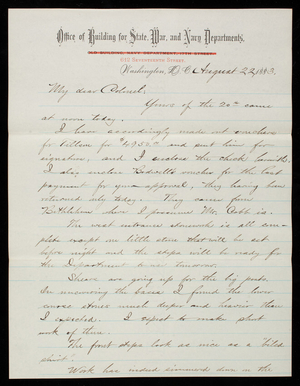 Office of Building for State, War, and Navy Departments.
OLD BUILDING, NAVY DEPARTMENT, 17TH STREET,
Washington, D. C. August 22, 1883.
My dear Colonel:
Yours of the 20th came
at noon today.
I have accordingly made out vouchers
for Tillou for $4952 and sent him for
signature, and I enclose the check herewith.
I also enclose Bedwell's voucher for the last
payment for your approval, they having been
returned only today. They came from
Bethlehem where I presume Mr. Cobb is.
The west entrance stonework is all com-
plete except one little stone that will be set
before night and the steps will be ready for
the Department to use tomorrow.
Shears are going up for the big posts.
In uncovering the bases I found the lower
course stones much deeper and heavier than
I expected. I expect to make short
work of them.
The front steps look as nice as a "biled
shirt".
Work has indeed simmered down in the